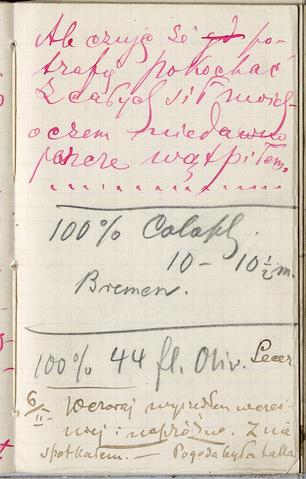 Ale czuję że potrafię pokochać
z całych sił moich
o czem niedawno
jeszcze wątpiłem.
100% Calakl.
10 – 10 ½ m.
Bremen.
100% 44 fl. Oliv.
6/II – Wczoraj wyszedłem
i napróżno. Z nie
spotkałem. — Pogoda była